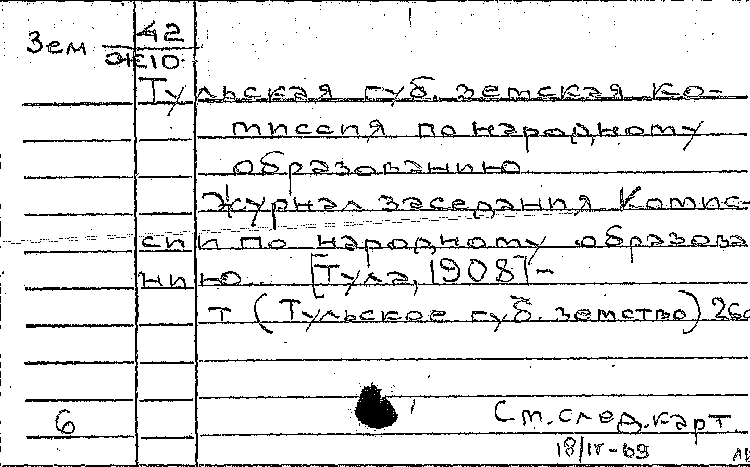 Зем 42
Ж10
Тульская губ. земская ко-
миссия по народному
образованию
Журнал заседания Комис-
сии по народному образова
нию. [Тула, 1908]-
т (Тульское губ. земство) 26с
6
См. след. карт.
18/IV-69